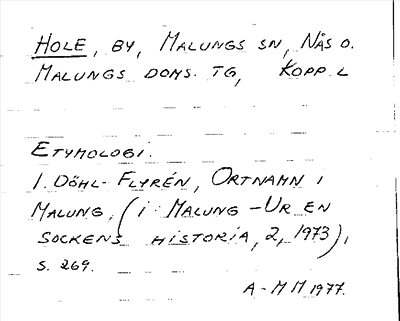 HOLE, BY, MALUNGS SN, NÅS O.
MALUNGS DOMS. TG, KOPP. L
ETYMOLOGI.
I. DÖHL- FLYRÉN, ORTNAMN I
MALUNG, (I MALUNG - UR EN
SOCKENS HISTORIA, 2, 1973),
S. 269.
A-MM 1977.